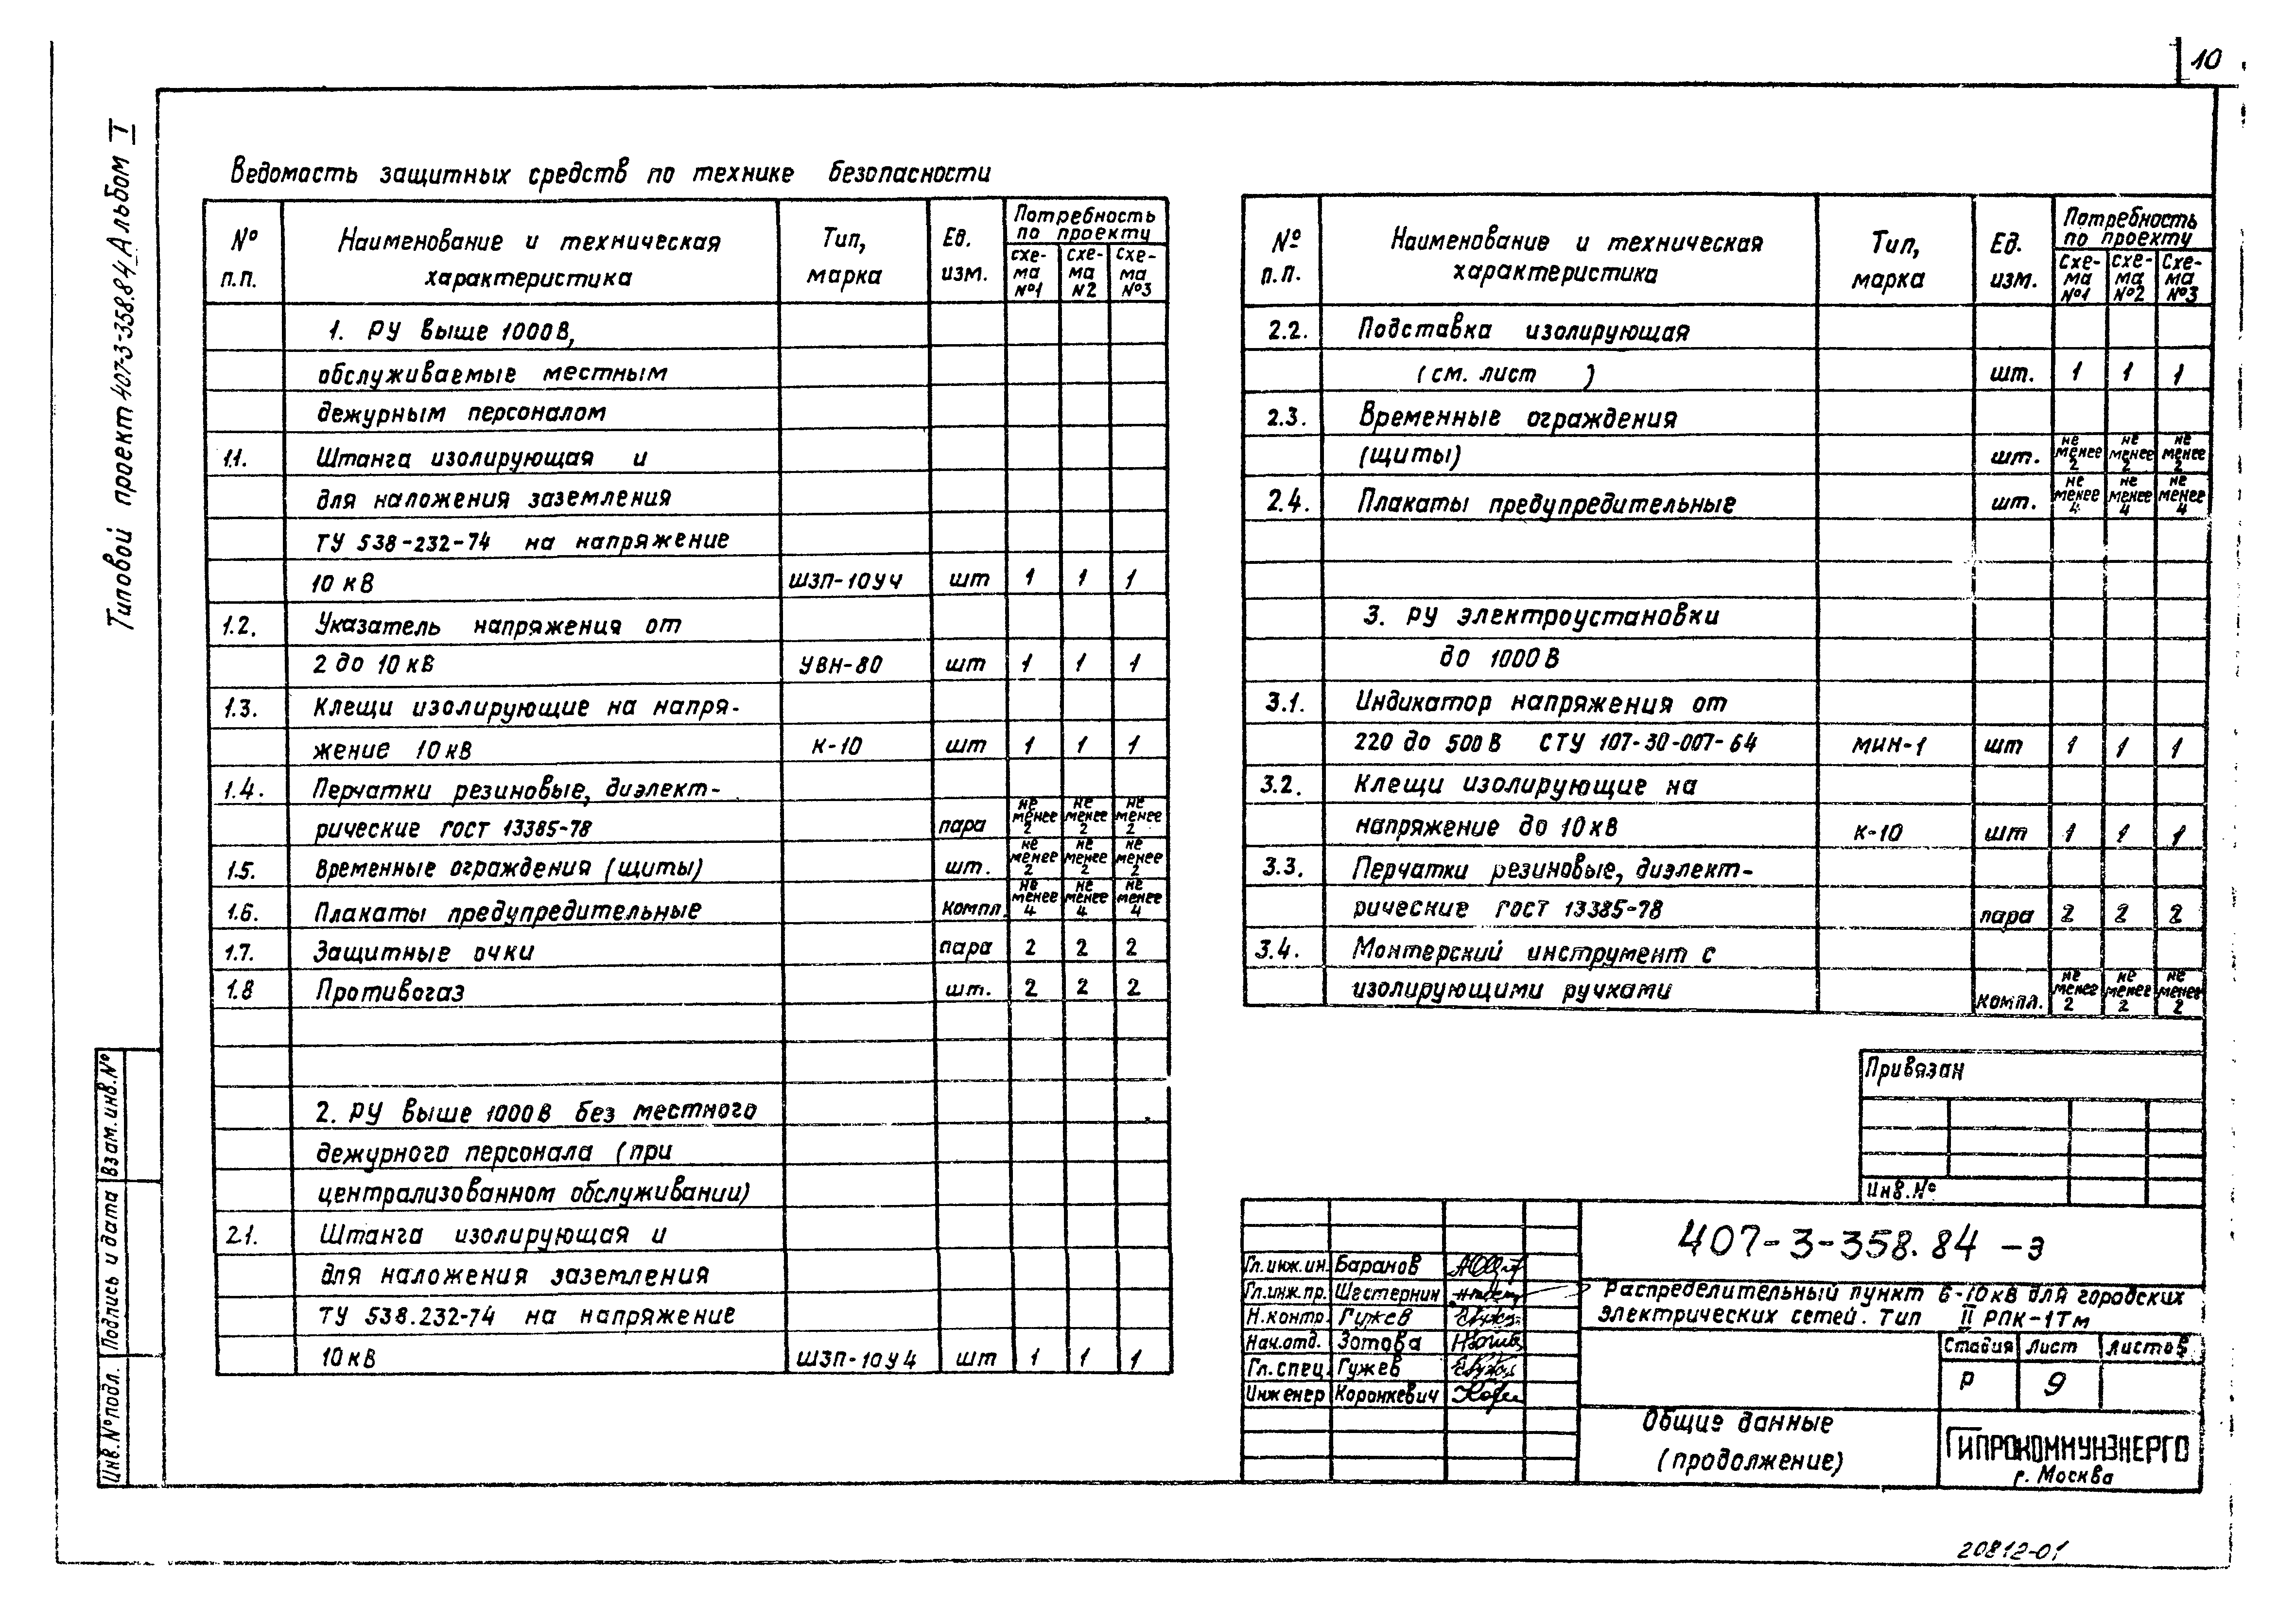 10
Типовой проект 407-3-358.84 Альбом I
Ведомость защитных средств по технике безопасности
№ п.п. Наименование и техническая характеристика Тип, марка Ед. изм. Потребность по проекту
схе-ма №1 схе-ма N2 схе-ма №3
1. РУ выше 1000В,
обслуживаемые местным
дежурным персоналом
1.1. Штанга изолирующая и
для наложения заземления
ТУ 538-232-74 на напряжение
10 кВ ШЗП-10У4 шт 1 1 1
1.2. Указатель напряжения от
2 до 10 кВ УВН-80 шт 1 1 1
1.3. Клещи изолирующие на напря-
жение 10 кВ К-10 шт 1 1 1
1.4. Перчатки резиновые, диэлект-
рические ГОСТ 13385-78 пара не менее 2 не менее 2 не менее 2
1.5. Временные ограждения (щиты) шт. не менее 2 не менее 2 не менее 2
1.6. Плакаты предупредительные компл. не менее 4 не менее 4 не менее 4
1.7. Защитные очки пара 2 2 2
1.8 Противогаз шт. 2 2 2
2. РУ выше 1000В без местного
дежурного персонала (при
централизованном обслуживании)
2.1. Штанга изолирующая и
для наложения заземления
ТУ 538.232-74 на напряжение
10 кВ ШЗП-10У4 шт 1 1 1
№ п.п. Наименование и техническая характеристика Тип, марка Ед. изм. Потребность по проекту
Схе-ма №1 схе-ма №2 Схе-ма №3
2.2. Подставка изолирующая
(см. лист ) шт. 1 1 1
2.3. Временные ограждения
(щиты) шт. не менее 2 не менее 2 не менее 2
2.4. Плакаты предупредительные шт. не менее 4 не менее 4 не менее 4
3. РУ электроустановки
до 1000 В
3.1. Индикатор напряжения от
220 до 500 В СТУ 107-30-007-64 МИН-1 шт 1 1 1
3.2. Клещи изолирующие на
напряжение до 10 кВ К-10 шт 1 1 1
3.3. Перчатки резиновые, диэлект-
рические ГОСТ 13385-78 пара 2 2 2
3.4. Монтерский инструмент с
изолирующими ручками компл. не менее 2 не менее 2 не менее 2
Привязан
Инв.№
407-3-358.84 -э
Гл.инж.ин. Баранов
Гл.инж.пр. Шестернин
Н.контр. Гужев
Нач.отд. Зотова
Гл.спец. Гужев
Инженер Коронкевич
Распределительный пункт 6-10кВ для городских
электрических сетей. Тип II РПК-1Тм
Стадия Лист Листов
Р 9
Общие данные
(продолжение)
ГИПРОКОММУНЭНЕРГО
г. Москва
Взам.инв.№
Подпись и дата
Инв.№подл.
20812-01